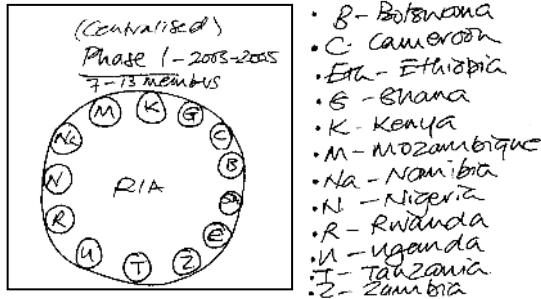 (Centralised)
Phase 1 - 2003-2005
7-13 members
M
K
G
C
B
SA
E
Z
T
U
R
N
Na
RIA
• B - Botswana
• C - Cameroon
• Eth - Ethiopia
• G - Ghana
• K - Kenya
• M - Mozambique
• Na - Namibia
• N - Nigeria
• R - Rwanda
• U - Uganda
• T - Tanzania
• Z - Zambia